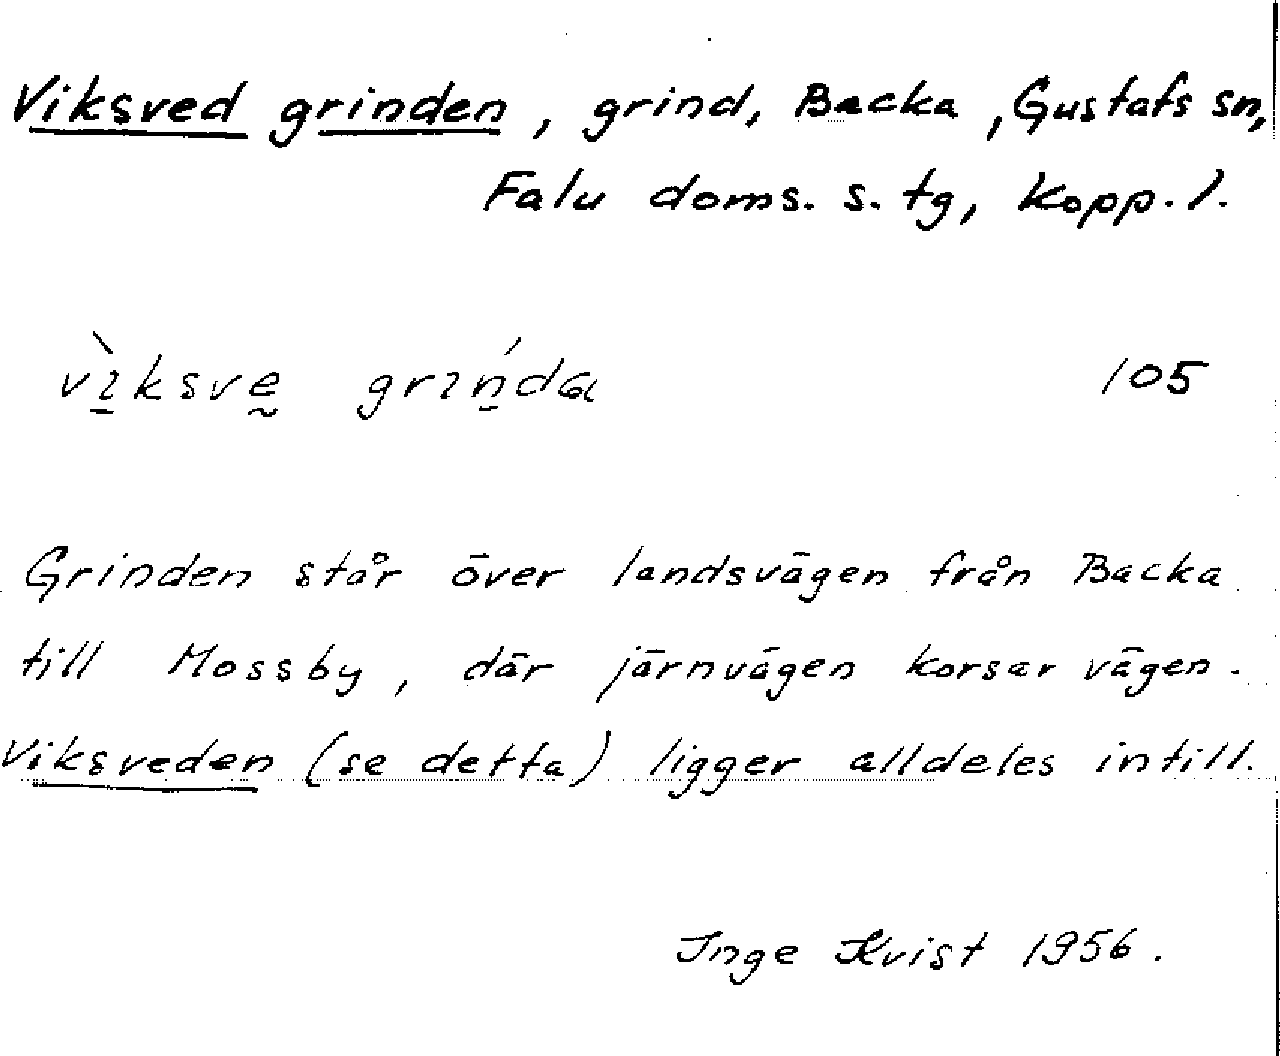 Viksved grinden, grind, Backa, Gustafs sn,
Falu doms. s. tg, Kopp. l.
vìksve grínda 105
Grinden står över landsvägen från Backa
till Mossby, där järnvägen korsar vägen.
Viksveden (se detta) ligger alldeles intill.
Inge Kvist 1956.